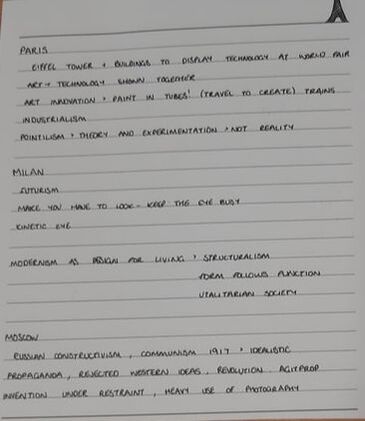 PARIS
EIFFEL TOWER + BUILDINGS TO DISPLAY TECHNOLOGY AT WORLD FAIR
ART + TECHNOLOGY SHOWN TOGETHER
ART INNOVATION > PAINT IN TUBES! (TRAVEL TO CREATE) TRAINS
INDUSTRIALISM
POINTILISM > THEORY AND EXPERIMENTATION > NOT REALITY
MILAN
FUTURISM
MAKE YOU HAVE TO LOOK - KEEP THE EYE BUSY
KINETIC EYE
MODERNISM AS DESIGN FOR LIVING > STRUCTURALISM
FORM FOLLOWS FUNCTION
UTALITARIAN SOCIETY
MOSCOW
RUSSIAN CONSTRUCTIVISM, COMMUNISM 1917 > IDEALISTIC
PROPAGANDA, REJECTED WESTERN IDEAS, REVOLUTION AGITPROP
INVENTION UNDER RESTRAINT, HEAVY USE OF PHOTOGRAPHY